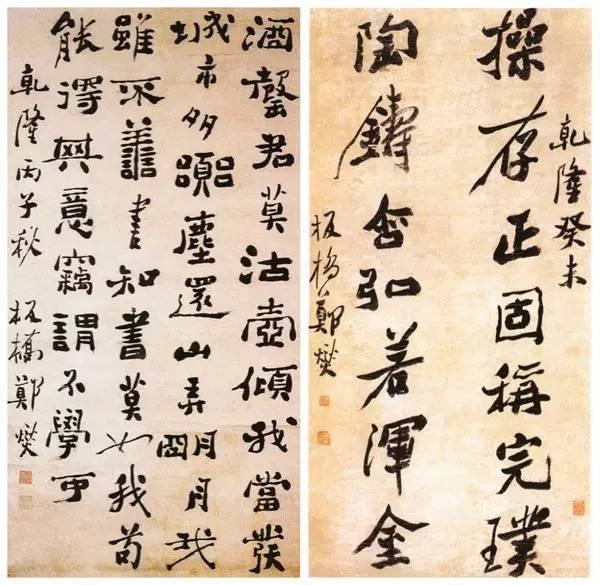 酒罄君莫沽壺傾我當發
城市多囂塵還山弄明月我
雖不善書知書莫如我苟
能得其意竊謂不學可
乾隆丙子秋 板橋鄭燮
乾隆癸未
操存正固稱完璞
陶鑄含弘若渾金
板橋鄭燮